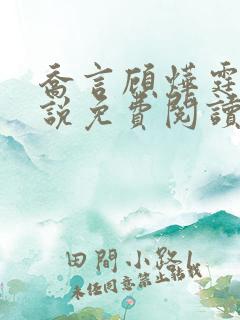 喬言顧燁霆
說免費閱讀
田間小路1
未经同意禁止转载